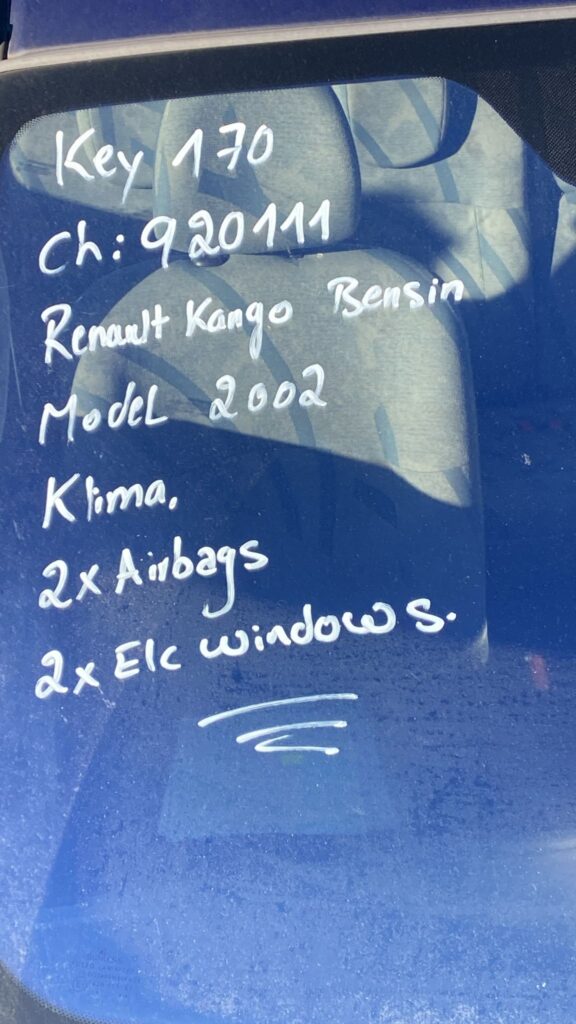 Key 170
Ch: 920111
Renault Kango Bensin
Model 2002
Klima.
2x Airbags
2x Elc windows.